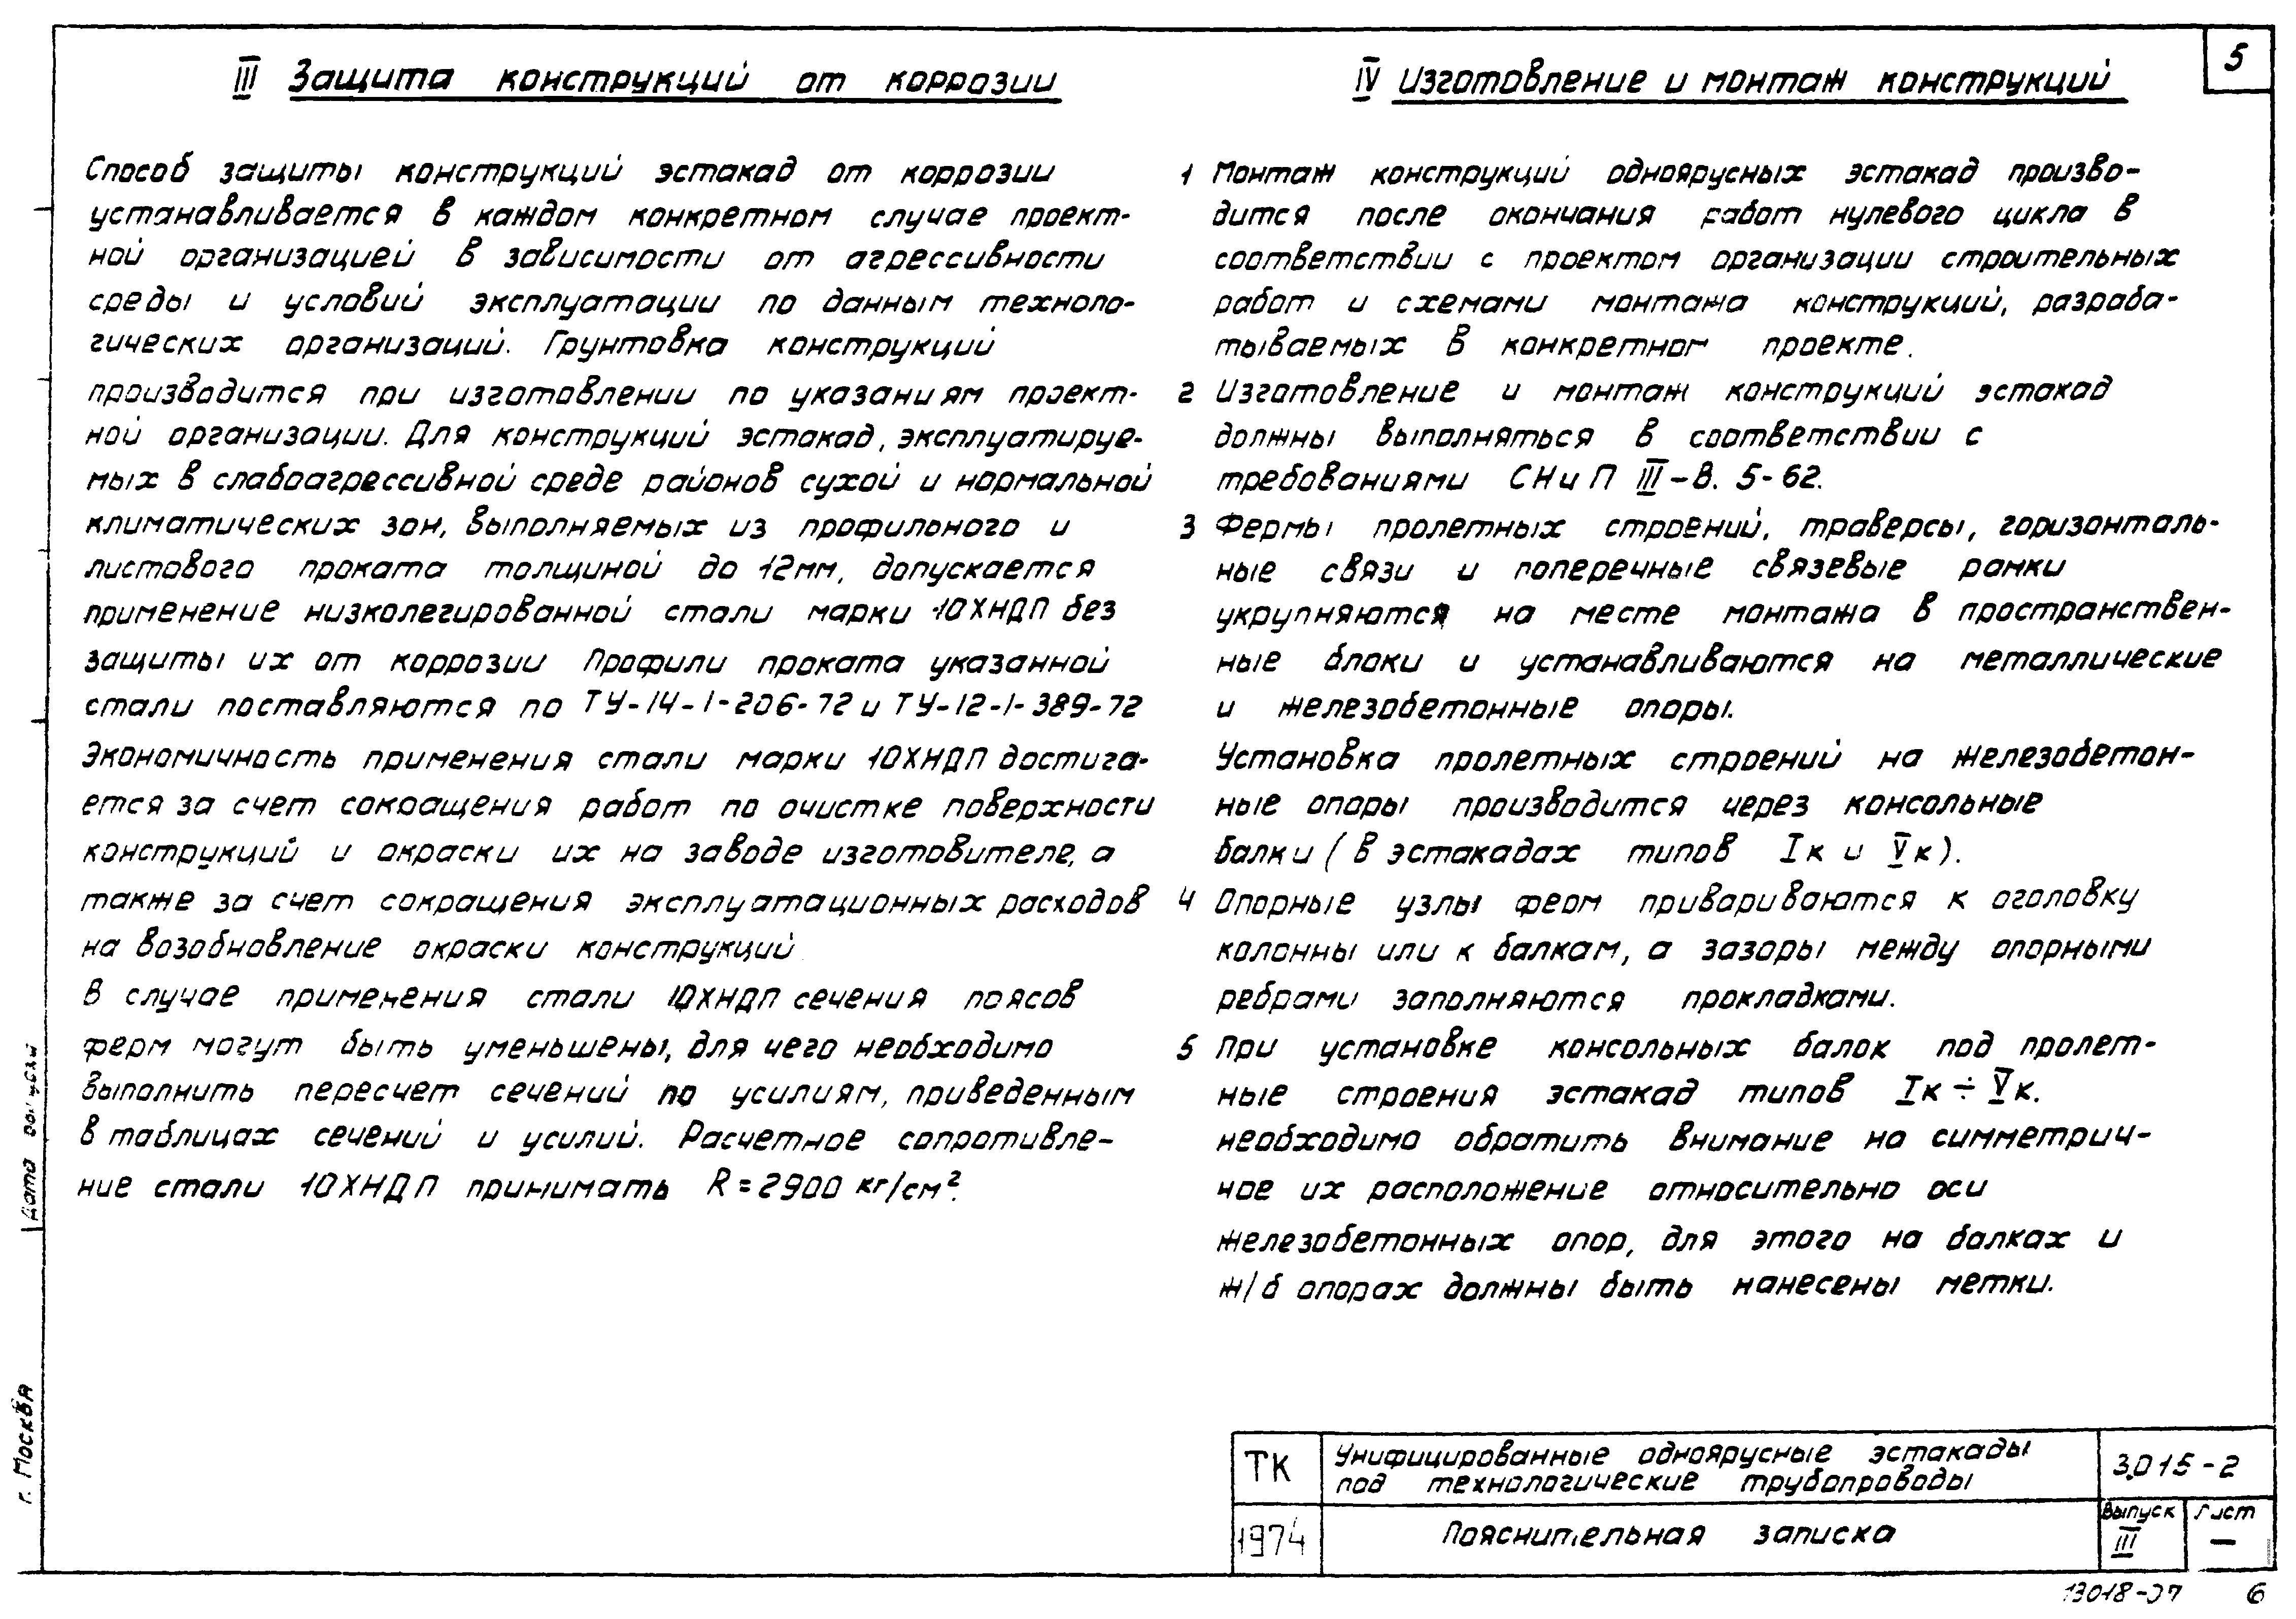 5
III Защита конструкций от коррозии
Способ защиты конструкций эстакад от коррозии
устанавливается в каждом конкретном случае проект-
ной организацией в зависимости от агрессивности
среды и условий эксплуатации по данным техноло-
гических организаций. Грунтовка конструкций
производится при изготовлении по указаниям проект-
ной организации. Для конструкций эстакад, эксплуатируе-
мых в слабоагрессивной среде районов сухой и нормальной
климатических зон, выполняемых из профильного и
листового проката толщиной до 12мм, допускается
применение низколегированной стали марки 10ХНДП без
защиты их от коррозии Профили проката указанной
стали поставляются по ТУ-14-1-206-72 и ТУ-12-1-389-72
Экономичность применения стали марки 10ХНДП достига-
ется за счет сокращения работ по очистке поверхности
конструкций и окраски их на заводе изготовителе, а
также за счет сокращения эксплуатационных расходов
на возобновление окраски конструкций
В случае применения стали 10ХНДП сечения поясов
ферм могут быть уменьшены, для чего необходимо
выполнить пересчет сечений по усилиям, приведенным
в таблицах сечений и усилий. Расчетное сопротивле-
ние стали 10ХНДП принимать R = 2900 кг/см².
IV Изготовление и монтаж конструкций
1 Монтаж конструкций одноярусных эстакад произво-
дится после окончания работ нулевого цикла в
соответствии с проектом организации строительных
работ и схемами монтажа конструкций, разраба-
тываемых в конкретном проекте.
2 Изготовление и монтаж конструкций эстакад
должны выполняться в соответствии с
требованиями СНиП III-В. 5-62.
3 Фермы пролетных строений, траверсы, горизонталь-
ные связи и поперечные связевые рамки
укрупняются на месте монтажа в пространствен-
ные блоки и устанавливаются на металлические
и железобетонные опоры.
Установка пролетных строений на железобетон-
ные опоры производится через консольные
балки (в эстакадах типов Iк и Vк).
4 Опорные узлы ферм привариваются к оголовку
колонны или к балкам, а зазоры между опорными
ребрами заполняются прокладками.
5 При установке консольных балок под пролет-
ные строения эстакад типов Iк ÷ Vк.
необходимо обратить внимание на симметрич-
ное их расположение относительно оси
железобетонных опор, для этого на балках и
ж/б опорах должны быть нанесены метки.
Дата
г. Москва
ТК
Унифицированные одноярусные эстакады
под технологические трубопроводы
3.015-2
1974
Пояснительная записка
Выпуск
III
Лист
—
13018-07 6